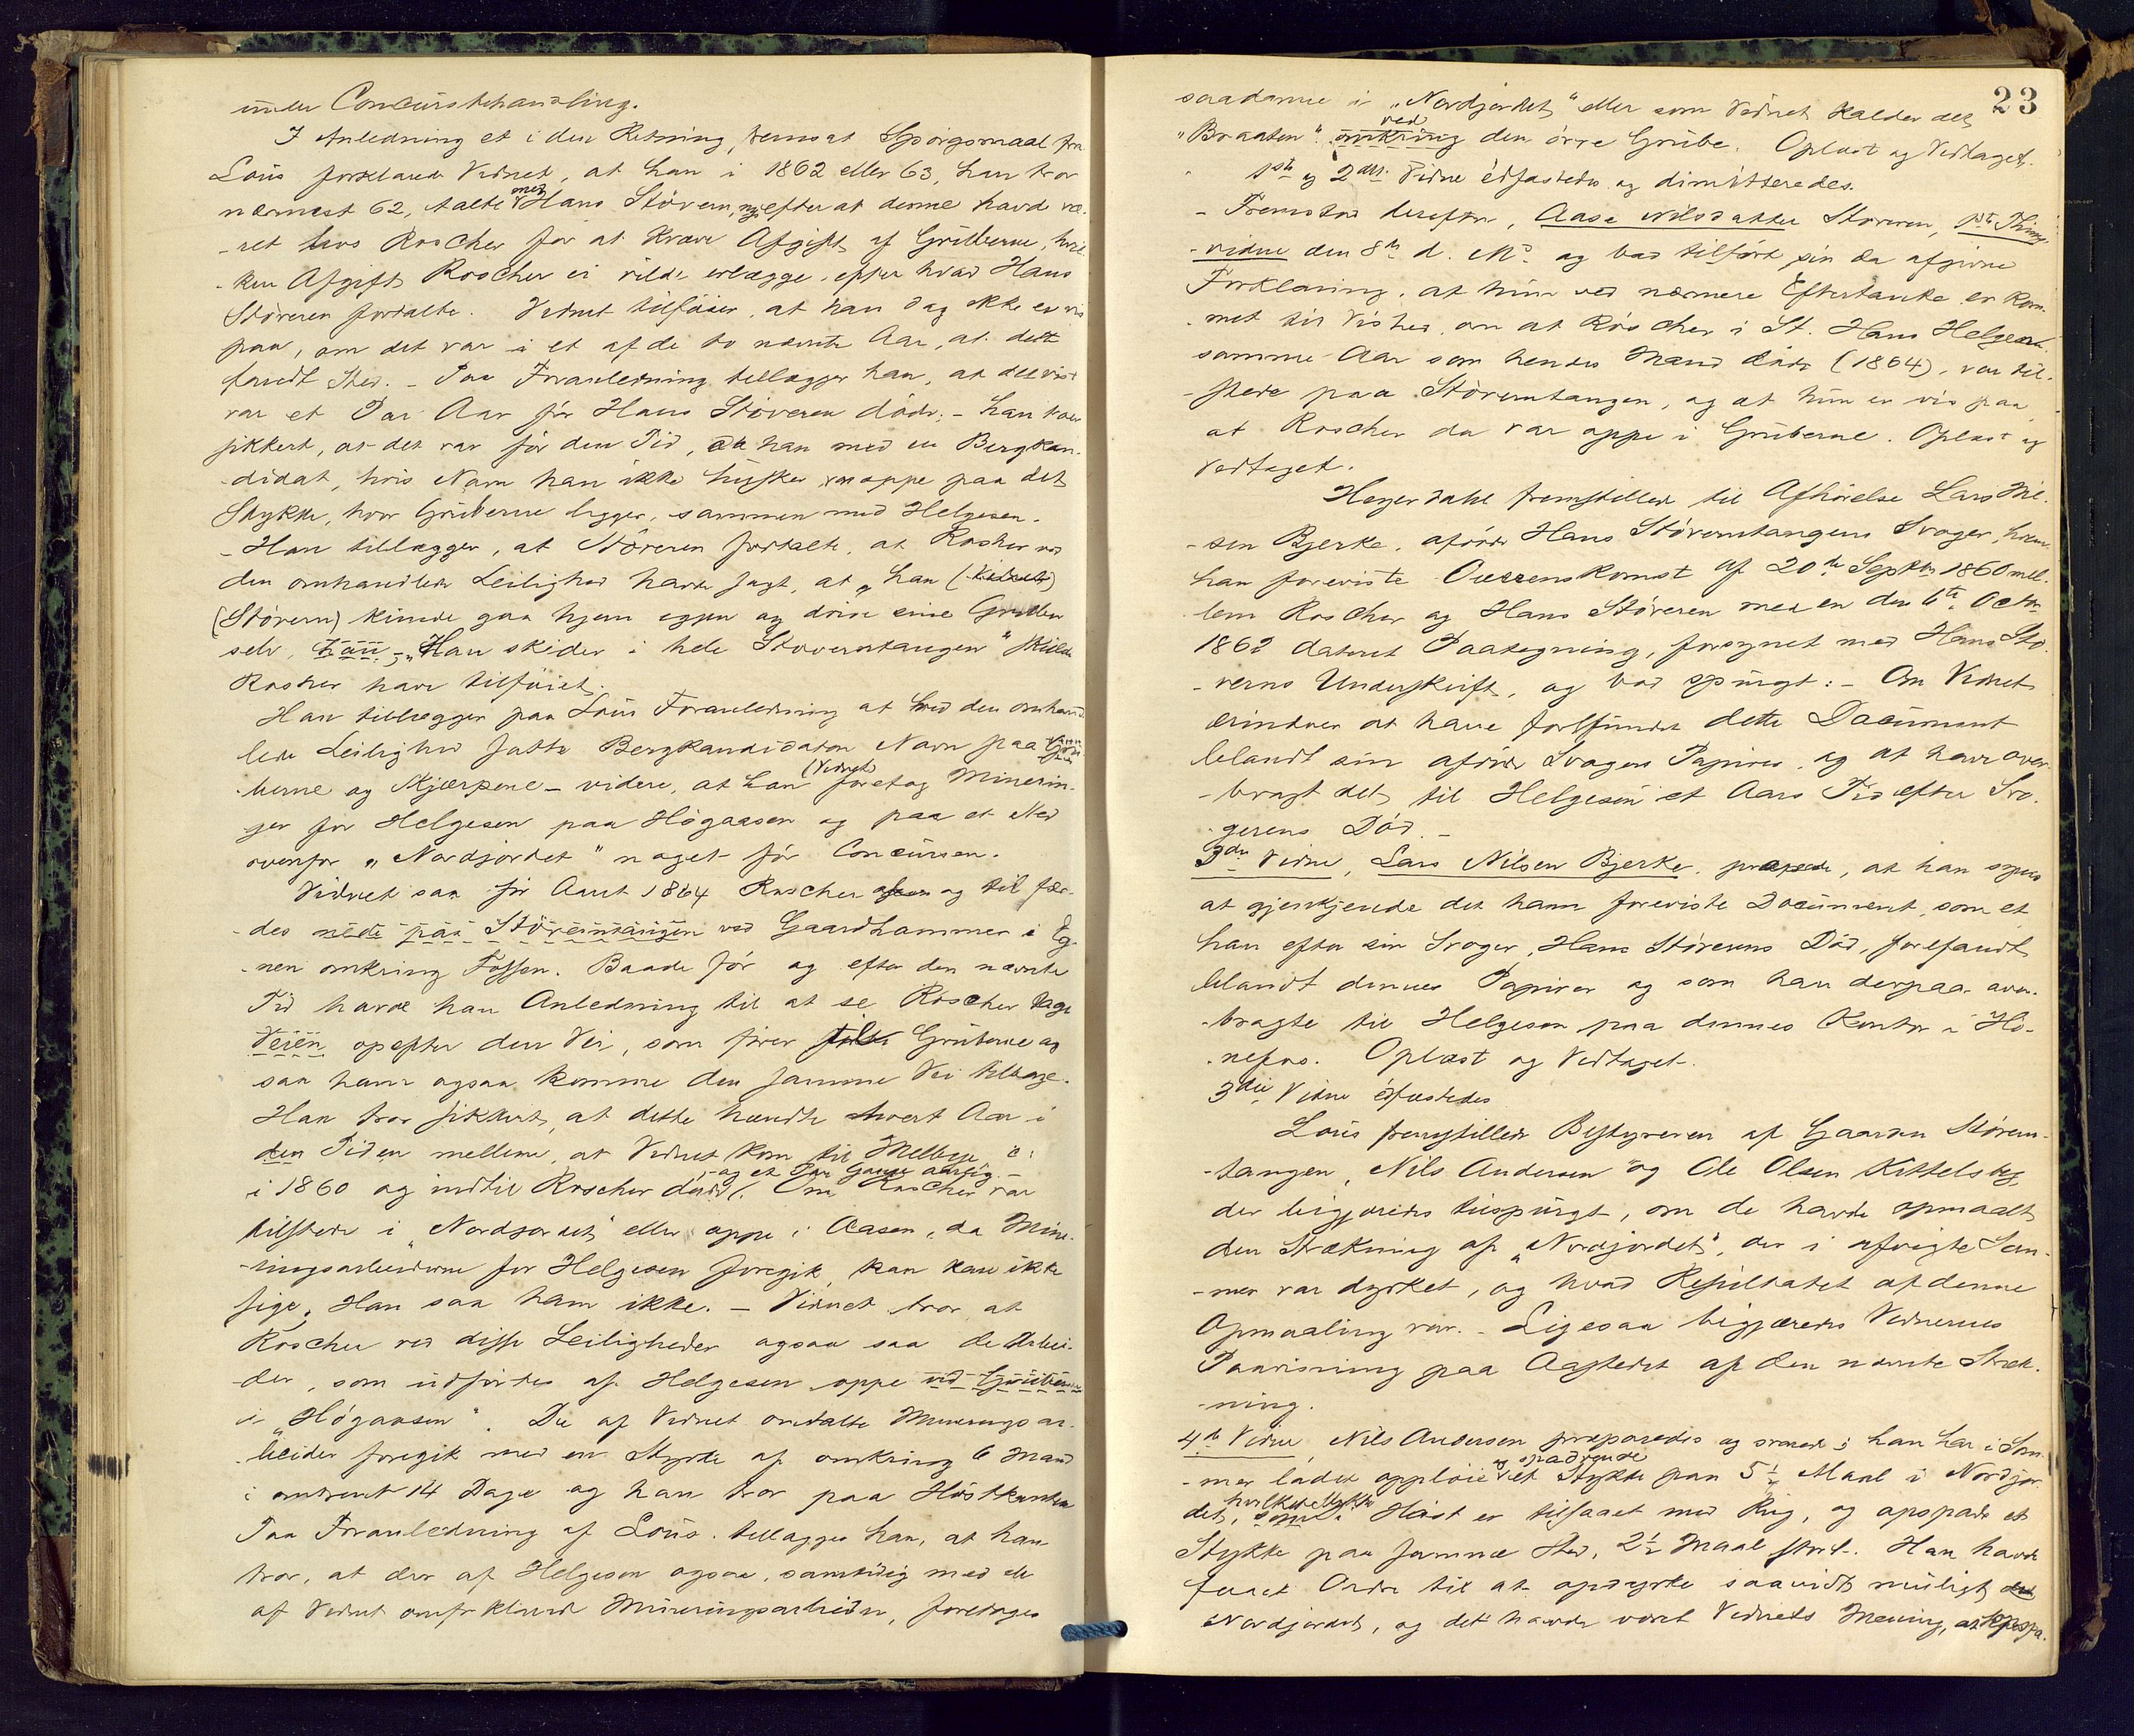 under Concursbehandling.
I Anledning et i den Retning fremsat Spørgsmaal fra
Lous forklarede Vidnet, at han i 1862 eller 63, han tror
nærmest 62, talte med Hans Støveren, efterat denne havde væ-
-ret hos Roscher for at kræve Afgift af Gruberne, hvil-
-ken Afgift Roscher ei vilde erlægge, efter hvad Hans
Støveren fortalte. Vidnet tilføier, at han dog ikke er vis
paa, om det var i et af de to nævnte Aar, at dette
fandt Sted. - Paa Foranledning tillægger han, at det vist
var et Par Aar før Hans Støveren døde; - han tror
sikkert, at det var før den Tid, da han med en Bergkan-
-didat, hvis Navn han ikke husker, var oppe paa det
Stykke, hvor Gruberne ligger, sammen med Helgesen.
- Han tillægger, at Støveren fortalte, at Roscher ved
den omhandlede Leilighed havde sagt, at „han (Vidnet)
(Støveren) kunde gaa hjem igjen og drive sine Gruber
selv, han; - „Han skider i hele Støverntangen" skulde
Roscher have tilføiet.
Han tillægger paa Lous Foranledning at ved den omhand-
lede Leilighed satte Bergkandidaten Navn paa Gru-
-berne og Skjærpene - videre, at han (Vidnet) foretog Minerin-
-ger for Helgesen paa Høgaasen og paa et Sted
ovenfor „Nordjordet" noget før Concursen.
Vidnet saa før Aaret 1864 Roscher og til fær-
-des nede paa Støverntangen ved Gaardhammer i Eg-
-nen omkring Fossen. Baade før og efter den nævnte
Tid havde han Anledning til at se Roscher tage
Veien opefter den Vei, som fører til Gruberne og
saa ham ogsaa komme den samme Vei tilbage.
Han tror sikkert, at dette hændte hvert Aar i
den Tiden mellem, at Vidnet kom til Melbye o:
i 1860 og indtil Roscher døde - og et Par Gange aarlig. - Om Roscher var
tilstede i „Nordjordet" eller oppe i Aasen, da Mine-
-ringsarbeiderne for Helgesen foregik, kan han ikke
sige. Han saa ham ikke. - Vidnet tror, at
Roscher ved disse Leiligheder ogsaa saa de Arbei-
-der, som udførtes af Helgesen oppe ved Gruberne
i „Høgaasen". De af Vidnet omtalte Mineringsar-
-beider foregik med en Styrke af omkring 6 Mand
i omtrent 14 Dage og han tror paa Høstkanten
Paa Foranledning af Lous tillægger han, at han
tror, at der af Helgesen ogsaa, samtidig med de
af Vidnet omforklarede Mineringsarbeider, foretoges
23
saadanne i „Nordjordet" eller som Vidnet kalder det
„Braaten" omkring ved den øvre Grube. Oplæst og Vedtaget.
1ste og 2det Vidne edfæstedes og dimitteredes.
- Fremstod derefter, Aase Nilsdatter Støveren, 1ste Thing-
-vidne den 8de d. Md og bad tilført sin da afgivne
Forklaring, at hun ved nærmere Eftertanke er kom-
-met til Vished om at Roscher i St. Hans Helgen
samme Aar som hendes Mand døde (1864), var til-
-stede paa Støverntangen, og at hun er vis paa
at Roscher da var oppe i Gruberne. Oplæst og
vedtaget.
Heyerdahl fremstillede til Afhørelse Lars Nil-
-sen Bjerke, afdøde Hans Støverntangens Svoger, hvem
han foreviste Overenskomst af 20de Septbr 1860 mel-
-lem Roscher og Hans Støveren med en den 6te Octbr
1862 dateret Paategning, forsynet med Hans Stø-
-verens Underskrift, og bad spurgt: - Om Vidnet
erindrer at have forefundet dette Document
blandt sin afdøde Svogers Papirer, og at have over-
-bragt det til Helgesen et Aars Tid efter Svo-
-gerens Død. -
3die Vidne, Lars Nilsen Bjerke, præpos, at han synes
at gjenkjende det ham foreviste Document, som et
han efter sin Svoger, Hans Støverens Død, forefandt
blandt dennes Papirer og som han derpaa over-
-bragte til Helgesen paa dennes Kontor i Hø-
-nefos. Oplæst og Vedtaget.
3die Vidne edfæstedes
Lous fremstillede Bestyreren af Gaarden Støvern-
-tangen, Nils Andersen og Ole Olsen Kittelsby,
der begjæredes tilspurgt, om de havde opmaalt
den Strækning af „Nordjordet", der i afvigte Som-
-mer var dyrket, og hvad Resultatet af denne
Opmaaling var. - Ligesaa begjæredes Vidnernes
Paavisning paa Aastedet af den nævnte Stræk-
-ning.
4de Vidne Nils Andersen præparedes og svarede; han har i Som-
-mer ladet opploie og spadvende et Stykke paa 5 1/2 Maal i Nordjor-
det, hvilket Stykke i Høst er tilsaaet med Rug, og opspade et
Stykke paa samme Sted, 2 1/2 Maal stort. Han havde
faaet Ordre til at opdyrke saavidt muligt
Nordjordet, og det havde været Vidnets Mening, at opspa-